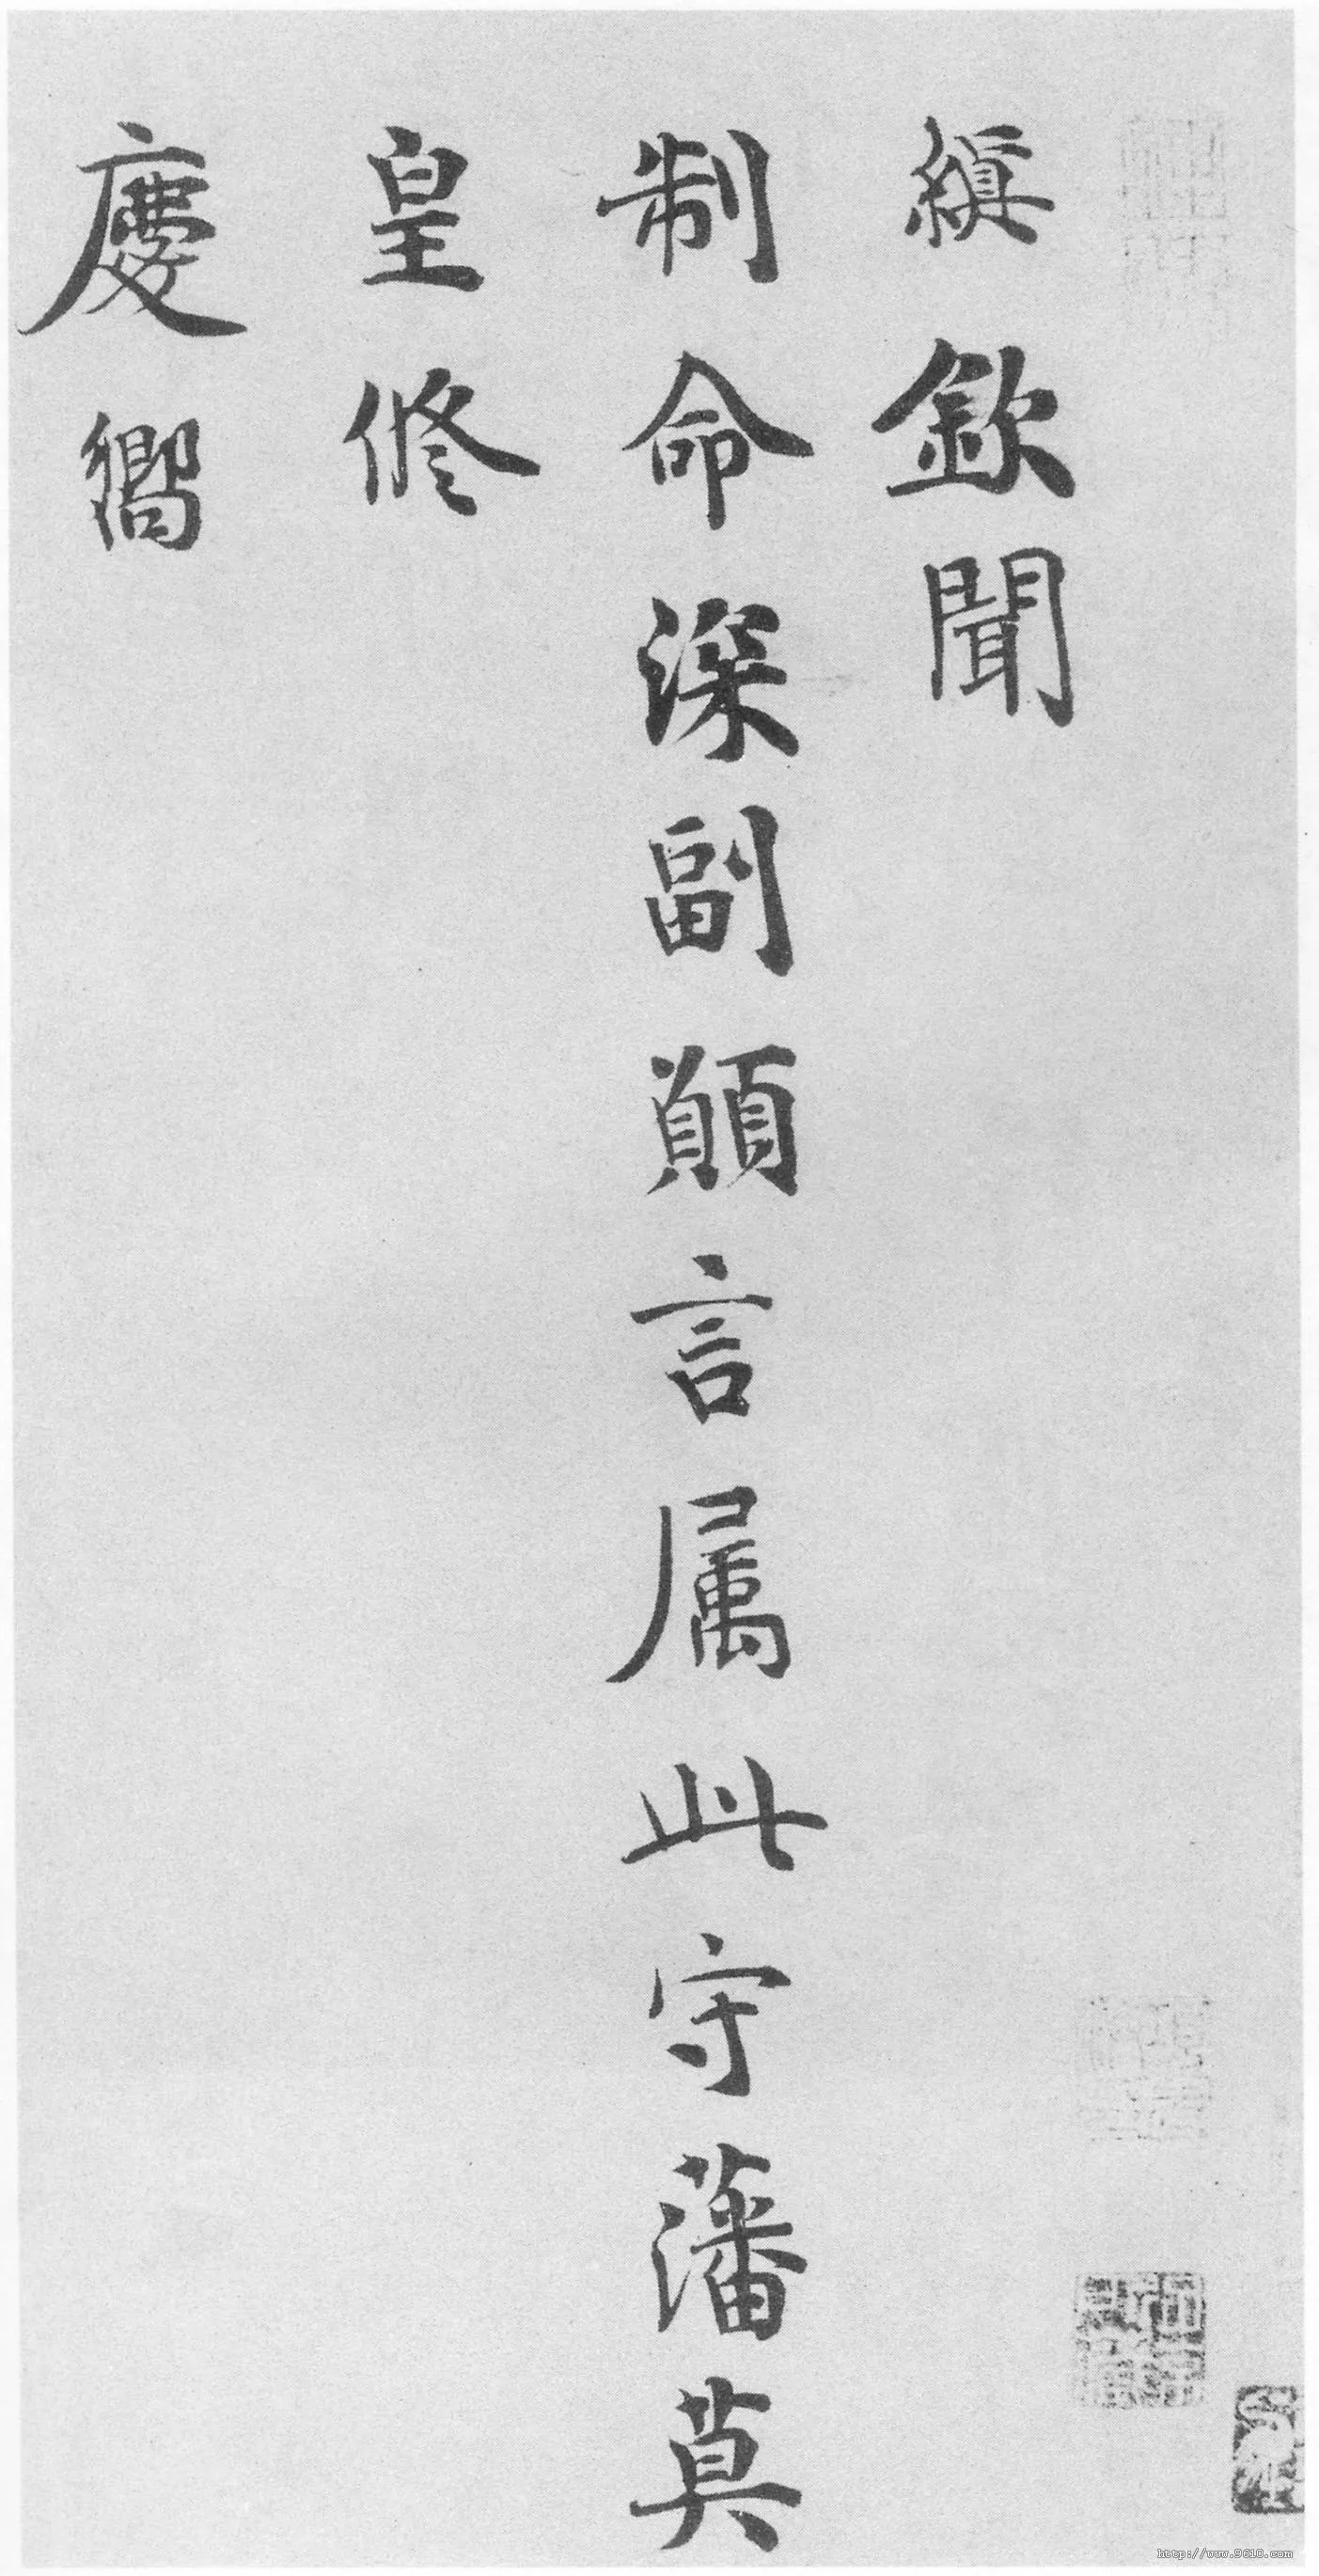 縝欽聞
制命深副願言属此守藩莫
皇脩
慶嚮
http://www.9610.com